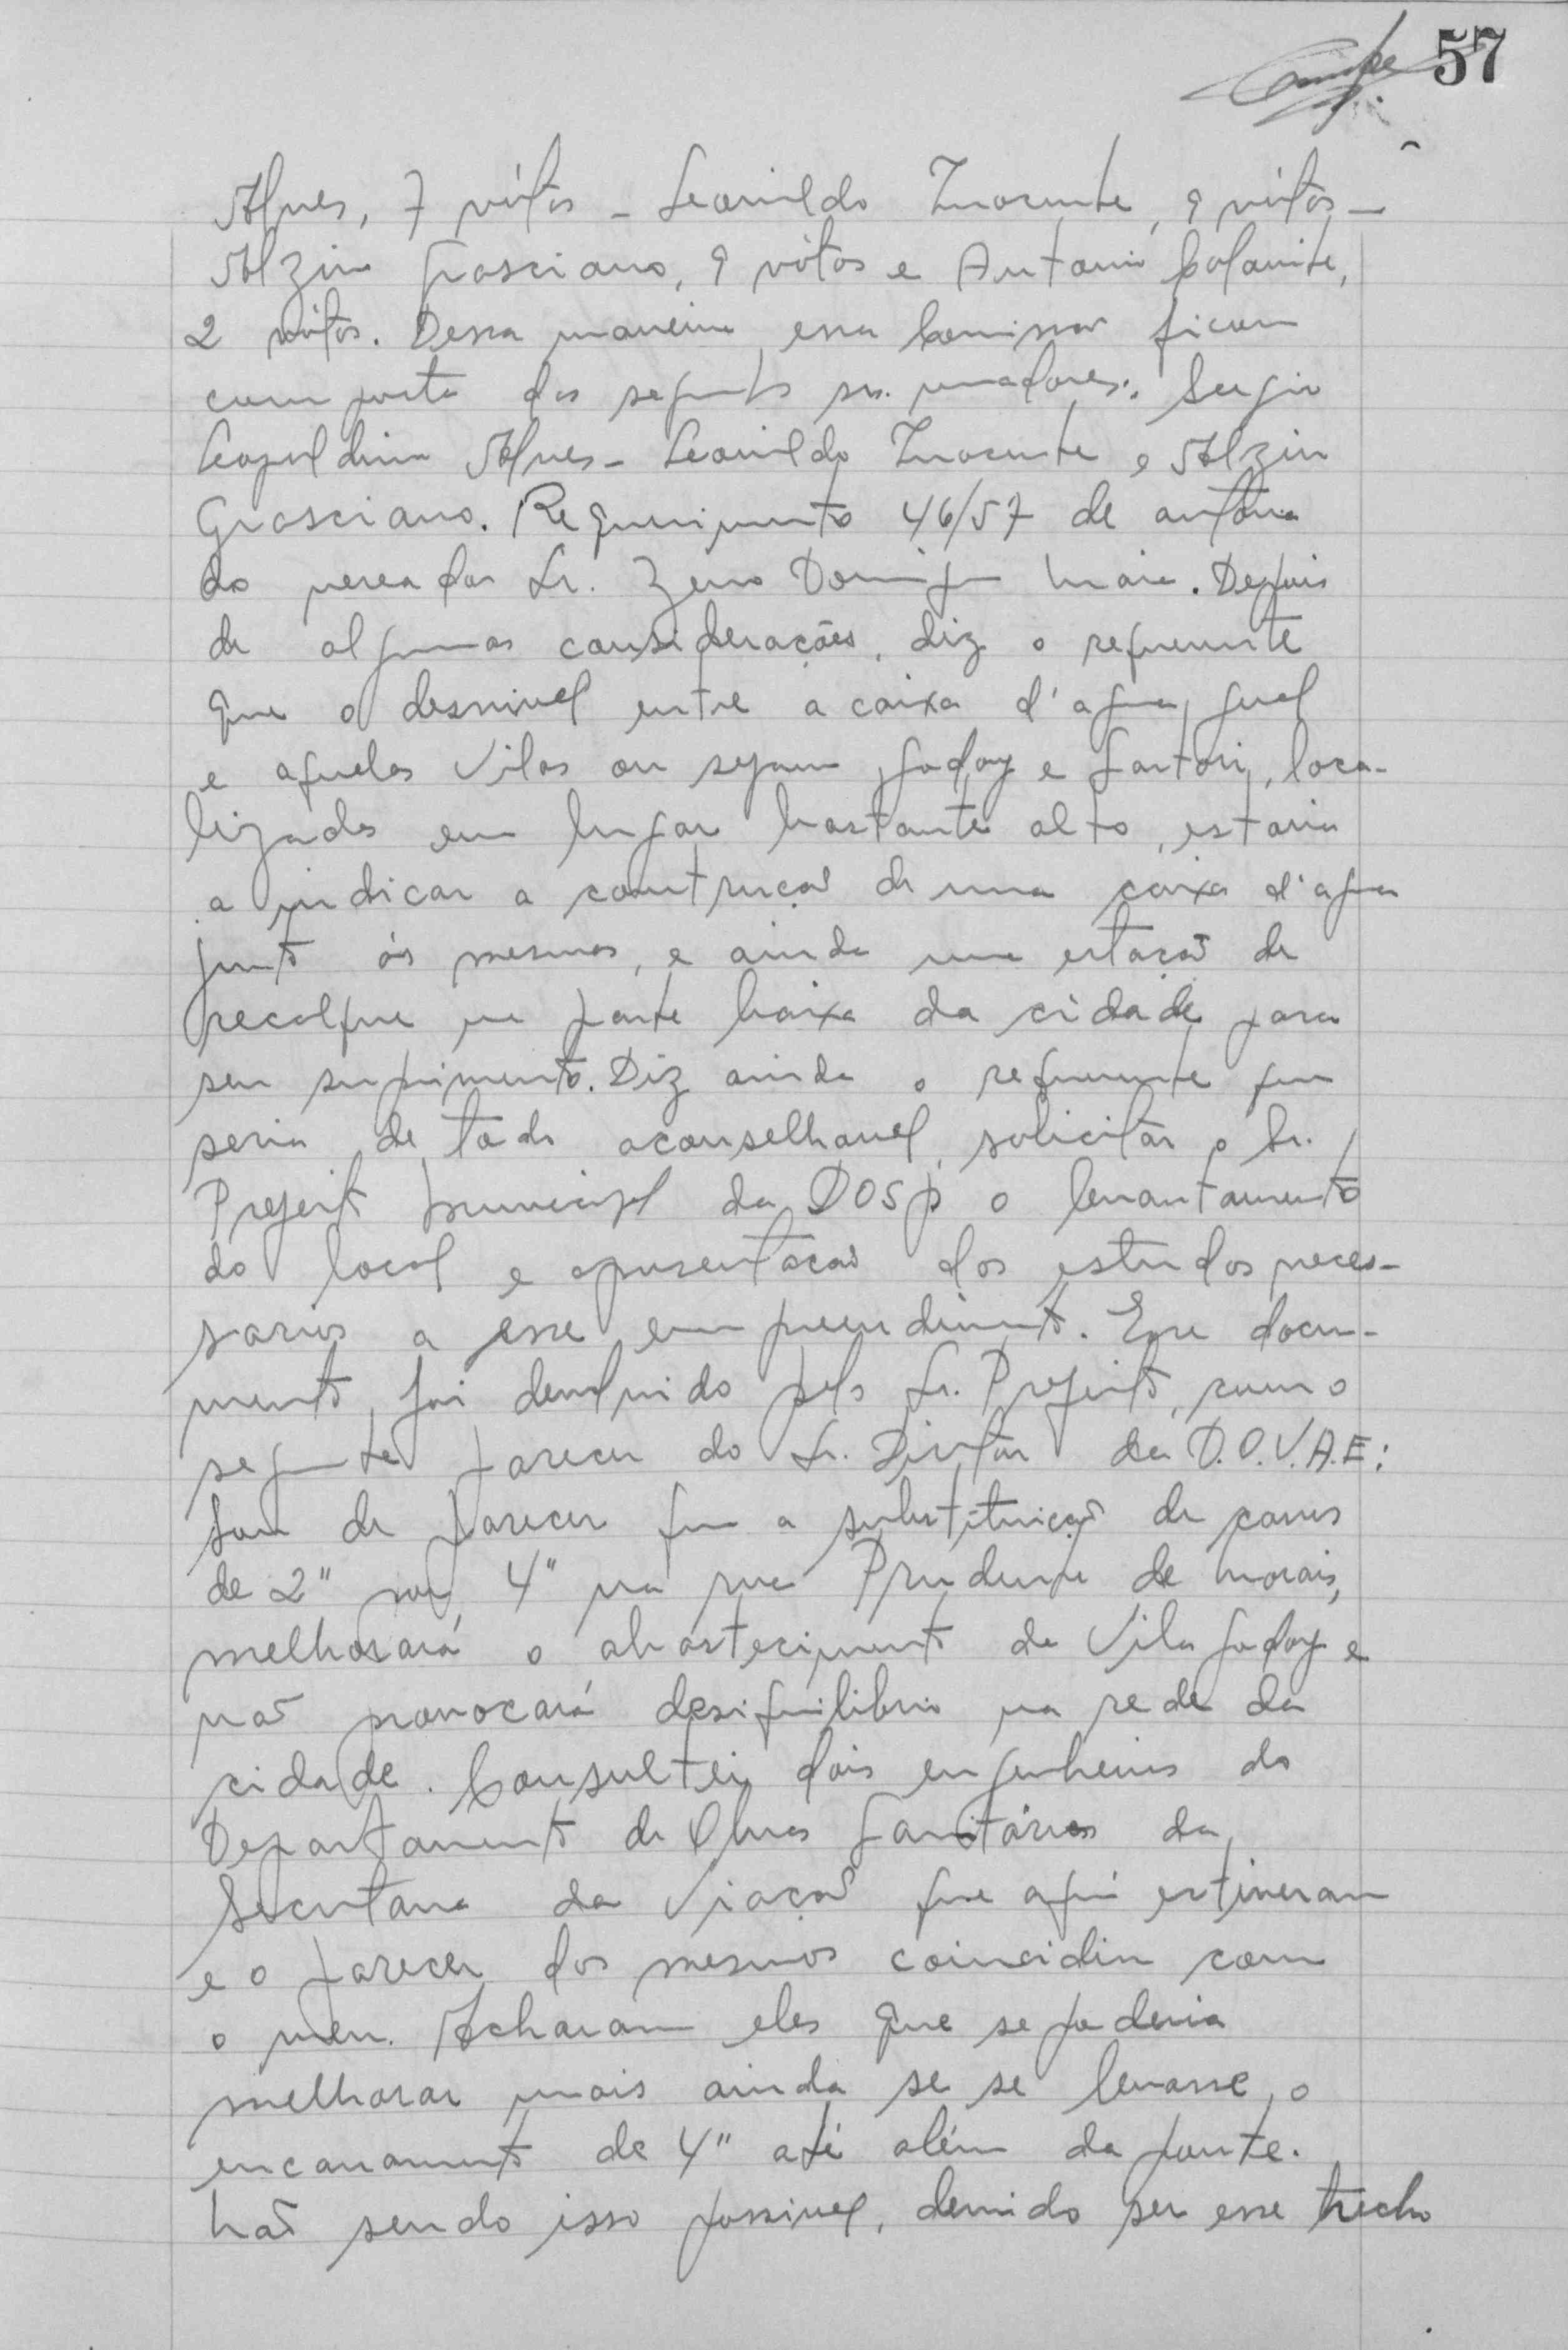 57
Alves, 7 vótos - Leonildo Inocente, 9 vótos -
Alzin Grosciano, 9 vótos e Antonio Colanite,
2 vótos. Dessa maneira, essa Comissão ficou
composta dos seguintes srs. vereadores: Sergio
Leopoldino Alves - Leonildo Inocente e Alzin
Grosciano. Requerimento 46/57 de autoria
do vereador Sr. Zeno Domingos Maia. Depois
de algumas considerações, diz o requerente
que o desnivel entre a caixa d'agua, qual
e aquelas Vilas ou sejam, Godoy e Sartori, loca-
lizadas em lugar bastante alto, estaria
a indicar a construção de uma caixa d'agua
junto ás mesmas, e ainda uma estação de
recalque na parte baixa da cidade para
seu suprimento. Diz ainda o requerente que
seria de todo aconselhavel, solicitar o Sr.
Prefeito Municipal da DOSP o levantamento
do local e apresentação dos estudos neces-
sarios a esse empreendimento. Esse docu-
mento, foi devolvido pelo Sr. Prefeito, com o
seguinte parecer do Sr. Diretor da D.O.V.A.E:
Sou de parecer que a substituição de canos
de 2" por 4" na rua Prudente de Morais,
melhorará o abastecimento da Vila Godoy e
não provocará desiquilibrio na rede da
cidade. Consultei dois engenheiros do
Departamento de Obras Sanitárias da
Secretaria da Viação que aqui estiveram
e o parecer dos mesmos coincidiu com
o meu. Acharam eles que se poderia
melhorar mais ainda se se levasse o
encanamento de 4" até além da ponte.
Não sendo isso possivel, devido ser esse trecho